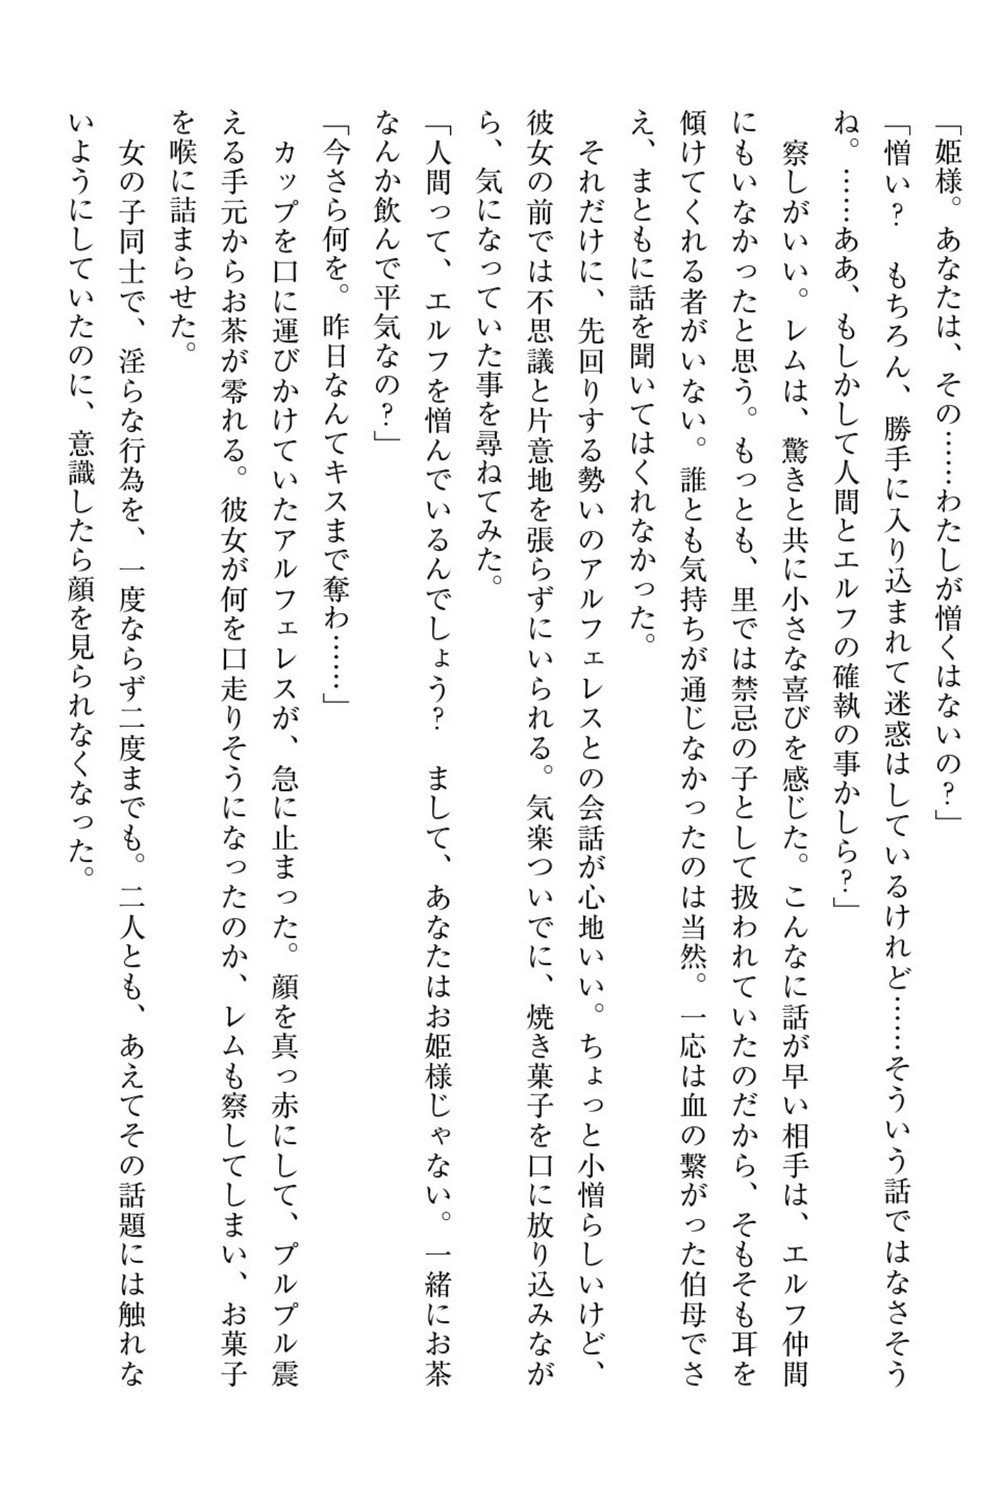 「姫様。あなたは、その……わたしが憎くはないの？」
「憎い？　もちろん、勝手に入り込まれて迷惑はしているけれど……そういう話ではなさそう
ね。……ああ、もしかして人間とエルフの確執の事かしら？」
　察しがいい。レムは、驚きと共に小さな喜びを感じた。こんなに話が早い相手は、エルフ仲間
にもいなかったと思う。もっとも、里では禁忌の子として扱われていたのだから、そもそも耳を
傾けてくれる者がいない。誰とも気持ちが通じなかったのは当然。一応は血の繋がった伯母でさ
え、まともに話を聞いてはくれなかった。
　それだけに、先回りする勢いのアルフェレスとの会話が心地いい。ちょっと小憎らしいけど、
彼女の前では不思議と片意地を張らずにいられる。気楽ついでに、焼き菓子を口に放り込みなが
ら、気になっていた事を尋ねてみた。
「人間って、エルフを憎んでいるんでしょう？　まして、あなたはお姫様じゃない。一緒にお茶
なんか飲んで平気なの？」
「今さら何を。昨日なんてキスまで奪わ……」
　カップを口に運びかけていたアルフェレスが、急に止まった。顔を真っ赤にして、プルプル震
える手元からお茶が零れる。彼女が何を口走りそうになったのか、レムも察してしまい、お菓子
を喉に詰まらせた。
　女の子同士で、淫らな行為を、一度ならず二度までも。二人とも、あえてその話題には触れな
いようにしていたのに、意識したら顔を見られなくなった。